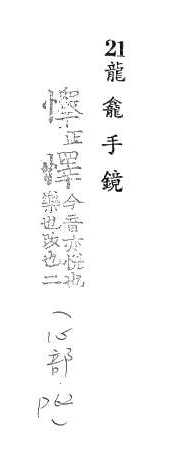 21 龍龕手鏡
正懌今音亦悅也樂也改也二
(心部 P62)